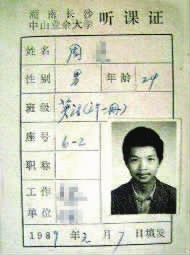 湖南长沙
中山业余大学 听课证
姓名 周
性别 男 年龄 24
班级
座号 6-2
职称
工作
单位
1989年2月7日填发